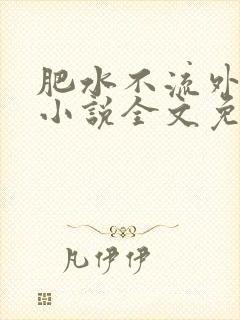 肥水不流外
小説全文免
凡伊伊